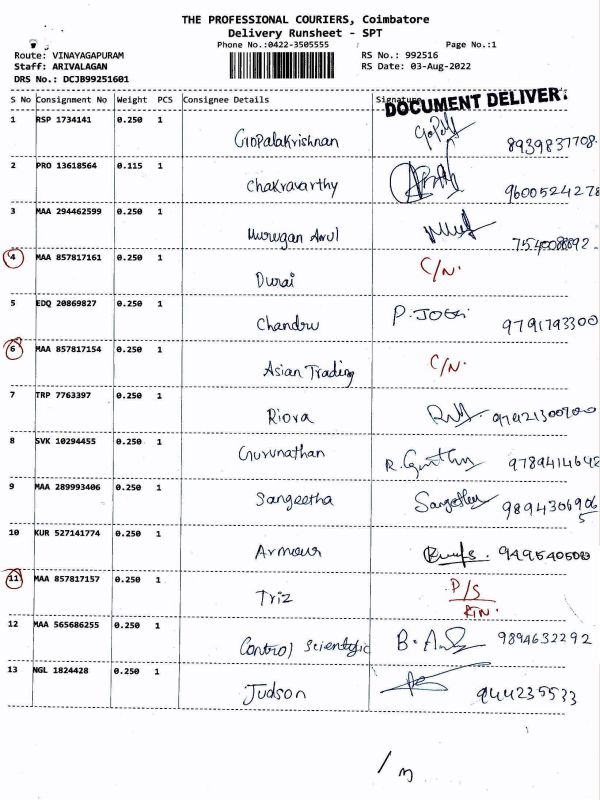 THE PROFESSIONAL COURIERS, Coimbatore
Delivery Runsheet - SPT
Phone No.:0422-3505555 Page No.:1
Route: VINAYAGAPURAM RS No.: 992516
Staff: ARIVALAGAN RS Date: 03-Aug-2022
DRS No.: DCJB99251601
S No Consignment No Weight PCS Consignee Details Signature
DOCUMENT DELIVER
1 RSP 1734141 0.250 1 Gopalakrishnan 8939837708
2 PRO 13618564 0.115 1 Chakravarthy 9600524278
3 MAA 294462599 0.250 1 Murugan Arul
4 MAA 857817161 0.250 1 Durai C/N.
5 EDQ 20869827 0.250 1 Chandru 9791793300
6 MAA 857817154 0.250 1 Asian Trading C/N.
7 TRP 7763397 0.250 1 Riova
8 SVK 10294455 0.250 1 Gurunathan 9789414648
9 MAA 289993406 0.250 1 Sangeetha
10 KUR 527141774 0.250 1 Armour
11 MAA 857817157 0.250 1 Triz P/S
12 MAA 565686255 0.250 1 Control Scientific 9894632292
13 NGL 1824428 0.250 1 Judson 944235533